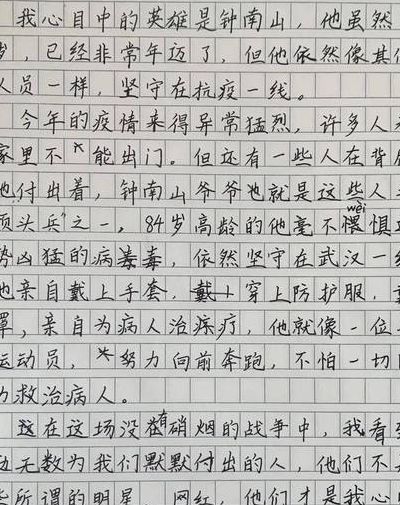 我心目中的英雄是钟南山，他虽然
岁，已经非常年迈了，但他依然像其他
人员一样，坚守在抗疫一线。
今年的疫情来得异常猛烈，许多人
家里不能出门。但还有一些人在背
他付出着，钟南山爷爷也就是这些人
头兵”之一，84岁高龄的他毫不畏惧
wèi
势凶猛的病毒，依然坚守在武汉一
他亲自戴上手套，穿上防护服，
罩，亲自为病人治疗，他就像一位
运动员，努力向前奔跑，不怕一切
力救治病人。
在这场没有硝烟的战争中，我看
动无数为我们默默付出的人，他们不
些所谓的明星、网红，他们才是我心